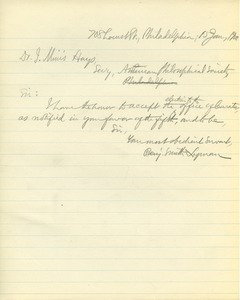 708 Locust St., Philadelphia, 15 Jan.,
Dr. I. Minis Hays,
Secy, American Philosophical Society
Philadelphia
Sir:
I have the honor to accept the election to the office of
as notified in your favor of the fifth, and to be
Sir,
Your most obedient servant,
Benj. Smith Lyman